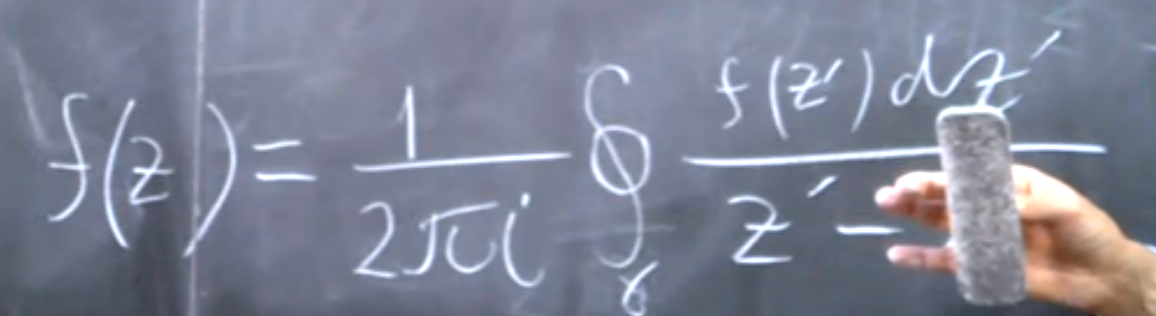 f(z) = \frac{1}{2\pi i} \oint_{\gamma} \frac{f(z')dz'}{z' -}